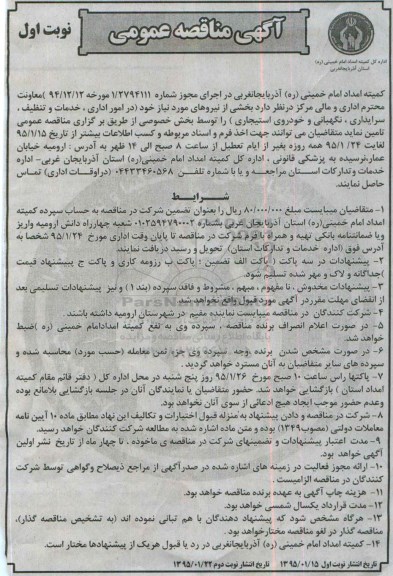 آگهی مناقصه عمومی
نوبت اول
اداره کل کمیته امداد امام خمینی(ره)
استان آذربایجانغربی
کمیته امداد امام خمینی (ره) آذربایجانغربی در اجرای مجوز شماره ۱/۲۷۹۴۱۱۱ مورخه ۹۴/۱۲/۱۲ )معاونت
محترم اداری و مالی مرکز درنظر دارد بخشی از نیروهای مورد نیاز خود (در امور اداری ، خدمات و تنظیف ،
سرایداری ، نگهبانی و خودروی استیجاری ) را توسط بخش خصوصی از طریق بر گزاری مناقصه عمومی
تامین نماید متقاضیان می توانند جهت اخذ فرم و اسناد مربوطه و کسب اطلاعات بیشتر از تاریخ ۹۵/۱/۱۵
لغایت ۹۵/۱/۲۴ همه روزه بغیر از ایام تعطیل از ساعت ۸ صبح الی ۱۴ ظهر به آدرس : ارومیه خیابان
عمار،نرسیده به پزشکی قانونی ، اداره کل کمیته امداد امام خمینی(ره) استان آذربایجان غربی- اداره
خدمات و تدارکات استان مراجعه و یا با شماره تلفن ۰۴۴۳۳۴۶۰۵۶۸ (دراوقات اداری) تماس
حاصل نمایند.
شرایط
۱- متقاضیان میبایست مبلغ ۸۰/۰۰۰/۰۰۰ ریال را بعنوان تضمین شرکت در مناقصه به حساب سپرده کمیته
امداد امام خمینی(ره) استان آذربایجان غربی بشماره ۰۱۰۳۵۹۴۷۹۰۰۰۲ شعبه چهارراه دانش ارومیه واریز
ویا ضمانتنامه بانکی تهیه و همراه با فرم شرکت در مناقصه تا پایان وقت اداری مورخ ۹۵/۱/۲۴ شخصا به
آدرس فوق (اداره خدمات و تدارکات استان) تحویل و رسید دریافت نمایند.
۲- پیشنهادات در سه پاکت ( پاکت الف تضمین ؛ پاکت ب رزومه کاری و پاکت ج پیشنهاد قیمت
)جداگانه و لاک و مهر شده تسلیم شود.
۳- پیشنهادات مخدوش ، نا مفهوم ، مبهم ، مشروط و فاقد سپرده (بند ۱ ) و نیز پیشنهادات تسلیمی بعد
از انقضای مهلت مقرردر آگهی مورد قبول واقع نخواهد شد.
۴- شرکت کنندگان در مناقصه میبایست نماینده مقیم در شهرستان ارومیه داشته باشند.
۵- در صورت اعلام انصراف برنده مناقصه ، سپرده وی به نفع کمیته امدادامام خمینی (ره )ضبط
خواهد شد.
۶- در صورت مشخص شدن برنده ،وجه سپرده وی جزء ثمن معامله (حسب مورد) محاسبه شده و
سپرده های سایر متقاضیان به آنان مسترد خواهد گردید .
۷- پاکتها راس ساعت ۱۰ صبح مورخ ۹۵/۱/۲۶ روز پنج شنبه در محل اداره کل ( دفتر قائم مقام کمیته
امداد استان ) بازگشایی خواهد شد. حضور متقاضیان یا نمایندگان آنان در جلسه بازگشایی بلامانع بوده
وعدم حضور موجب ایجاد هیچ ادعائی از سوی آنان نخواهد بود.
۸- شرکت در مناقصه و دادن پیشنهاد به منزله قبول اختیارات و تکالیف این نهاد مطابق ماده ۱۰ آیین نامه
معاملات دولتی (مصوب۱۳۴۹) بوده و متن ماده اشاره شده به مطالعه شرکت کنندگان خواهد رسید.
۹- مدت اعتبار پیشنهادات و تضمینهای شرکت در مناقصه ی ماخوذه ، تا چهار ماه از تاریخ نشر اولین
آگهی خواهد بود.
۱۰- ارائه مجوز فعالیت در زمینه های اشاره شده در صدرآگهی از مراجع ذیصلاح وگواهی توسط شرکت
کنندگان در مناقصه الزامیست .
۱۱- هزینه چاپ آگهی به عهده برنده مناقصه خواهد بود.
۱۲- مدت قرارداد یکسال شمسی خواهد بود.
۱۳- هرگاه مشخص شود که پیشنهاد دهندگان با هم تبانی نموده اند (به تشخیص مناقصه گذار)،
مناقصه گذار در لغو مناقصه مختارخواهد بود.
۱۴- کمیته امداد امام خمینی (ره) آذربایجانغربی در رد یا قبول هریک از پیشنهادها مختار است.
تاریخ انتشار نوبت اول ۱۳۹۵/۰۱/۱۵ تاریخ انتشار نوبت دوم ۱۳۹۵/۰۱/۲۲